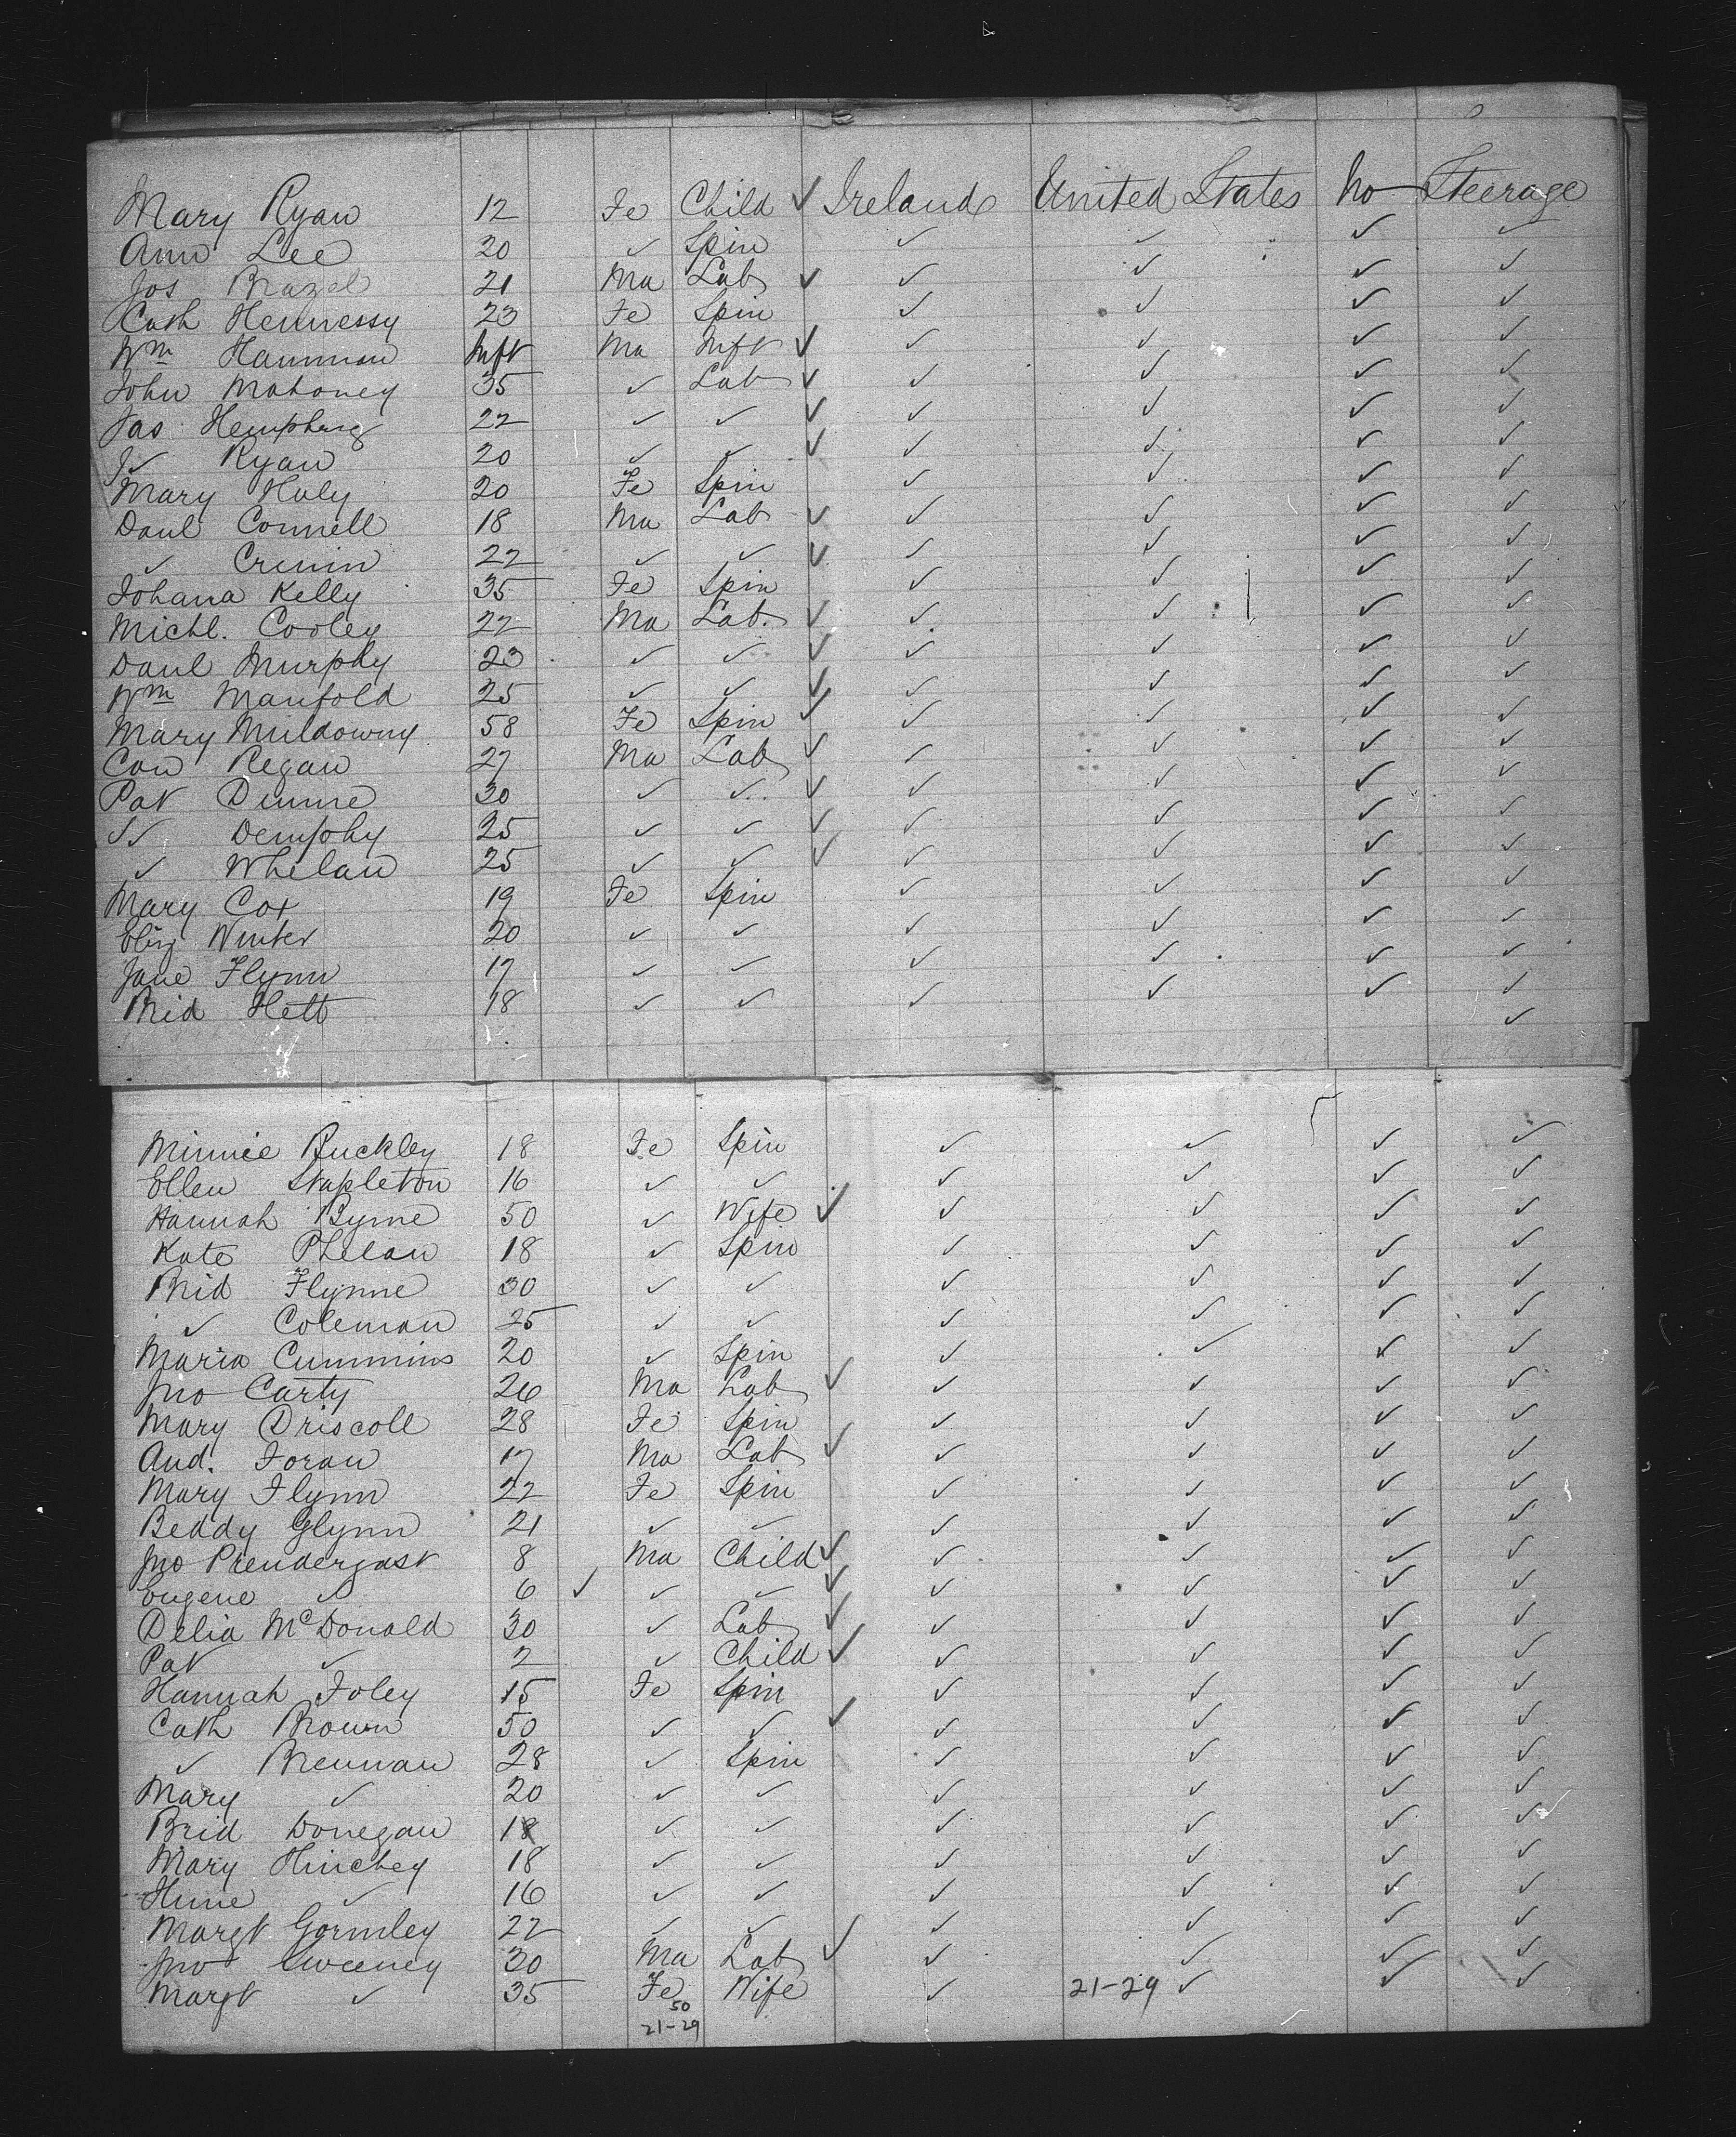 Mary Ryan 12 Fe Child ✓ Ireland United States No Steerage
Ann Lee 20 ✓ Spin ✓ ✓ ✓ ✓
Jos Brazel 21 Ma Lab ✓ ✓ ✓ ✓ ✓
Cath Hennessy 23 Fe Spin ✓ ✓ ✓ ✓
Wm Hannan Inft Ma Inft ✓ ✓ ✓ ✓ ✓
John Mahoney 35 ✓ Lab ✓ ✓ ✓ ✓ ✓
Jas 22 ✓ ✓ ✓ ✓ ✓ ✓ ✓
✓ Ryan 20 ✓ ✓ ✓ ✓ ✓ ✓ ✓
Mary Haly 20 Fe Spin ✓ ✓ ✓ ✓
Danl Connell 18 Ma Lab ✓ ✓ ✓ ✓ ✓
✓ Cronin 22 ✓ ✓ ✓ ✓ ✓ ✓ ✓
Johana Kelly 35 Fe Spin ✓ ✓ ✓ ✓
Michl. Cooley 22 Ma Lab. ✓ ✓ ✓ ✓ ✓
Danl Murphy 23 ✓ ✓ ✓ ✓ ✓ ✓ ✓
Wm Manfold 25 ✓ ✓ ✓ ✓ ✓ ✓ ✓
Mary Muldowny 58 Fe Spin ✓ ✓ ✓ ✓ ✓
Con Regan 27 Ma Lab ✓ ✓ ✓ ✓ ✓
Pat Dunne 30 ✓ ✓ ✓ ✓ ✓ ✓ ✓
✓ Demphy 25 ✓ ✓ ✓ ✓ ✓ ✓ ✓
✓ Whelan 25 ✓ ✓ ✓ ✓ ✓ ✓ ✓
Mary Cox 19 Fe Spin ✓ ✓ ✓ ✓
Eliz Winter 20 ✓ ✓ ✓ ✓ ✓ ✓
Jane Flynn 17 ✓ ✓ ✓ ✓ ✓ ✓
Brid Hett 18 ✓ ✓ ✓ ✓ ✓ ✓
✓
Minnie Buckley 18 Fe Spin ✓ ✓ ✓ ✓
Ellen Stapleton 16 ✓ ✓ ✓ ✓ ✓ ✓
Hannah Byrne 50 ✓ Wife ✓ ✓ ✓ ✓ ✓
Kate Phelan 18 ✓ Spin ✓ ✓ ✓ ✓
Brid Flynne 30 ✓ ✓ ✓ ✓ ✓ ✓
✓ Coleman 25 ✓ ✓ ✓ ✓ ✓ ✓
Maria Cummins 20 ✓ Spin ✓ ✓ ✓ ✓
Jno Carty 26 Ma Lab ✓ ✓ ✓ ✓ ✓
Mary Driscoll 28 Fe Spin ✓ ✓ ✓ ✓
And. Foran 17 Ma Lab ✓ ✓ ✓ ✓ ✓
Mary Flynn 22 Fe Spin ✓ ✓ ✓ ✓
Beddy Glynn 21 ✓ ✓ ✓ ✓ ✓ ✓
Jno Prendergast 8 Ma Child ✓ ✓ ✓ ✓ ✓
Eugene ✓ 6 ✓ ✓ ✓ ✓ ✓ ✓ ✓ ✓
Delia McDonald 30 ✓ Lab ✓ ✓ ✓ ✓ ✓
Pat ✓ 2 ✓ Child ✓ ✓ ✓ ✓ ✓
Hannah Foley 15 Fe Spin ✓ ✓ ✓ ✓
Cath Brown 50 ✓ ✓ ✓ ✓ ✓ ✓ ✓
✓ Brennan 28 ✓ Spin ✓ ✓ ✓ ✓
Mary ✓ 20 ✓ ✓ ✓ ✓ ✓ ✓
Brid Donegan 18 ✓ ✓ ✓ ✓ ✓ ✓
Mary Hinchey 18 ✓ ✓ ✓ ✓ ✓ ✓
✓ 16 ✓ ✓ ✓ ✓ ✓ ✓
Margt Gormley 22 ✓ ✓ ✓ ✓ ✓ ✓
Jno Sweeney 30 Ma Lab ✓ ✓ ✓ ✓ ✓
Margt ✓ 35 Fe Wife ✓ 21-29 ✓ ✓ ✓
50
21-29